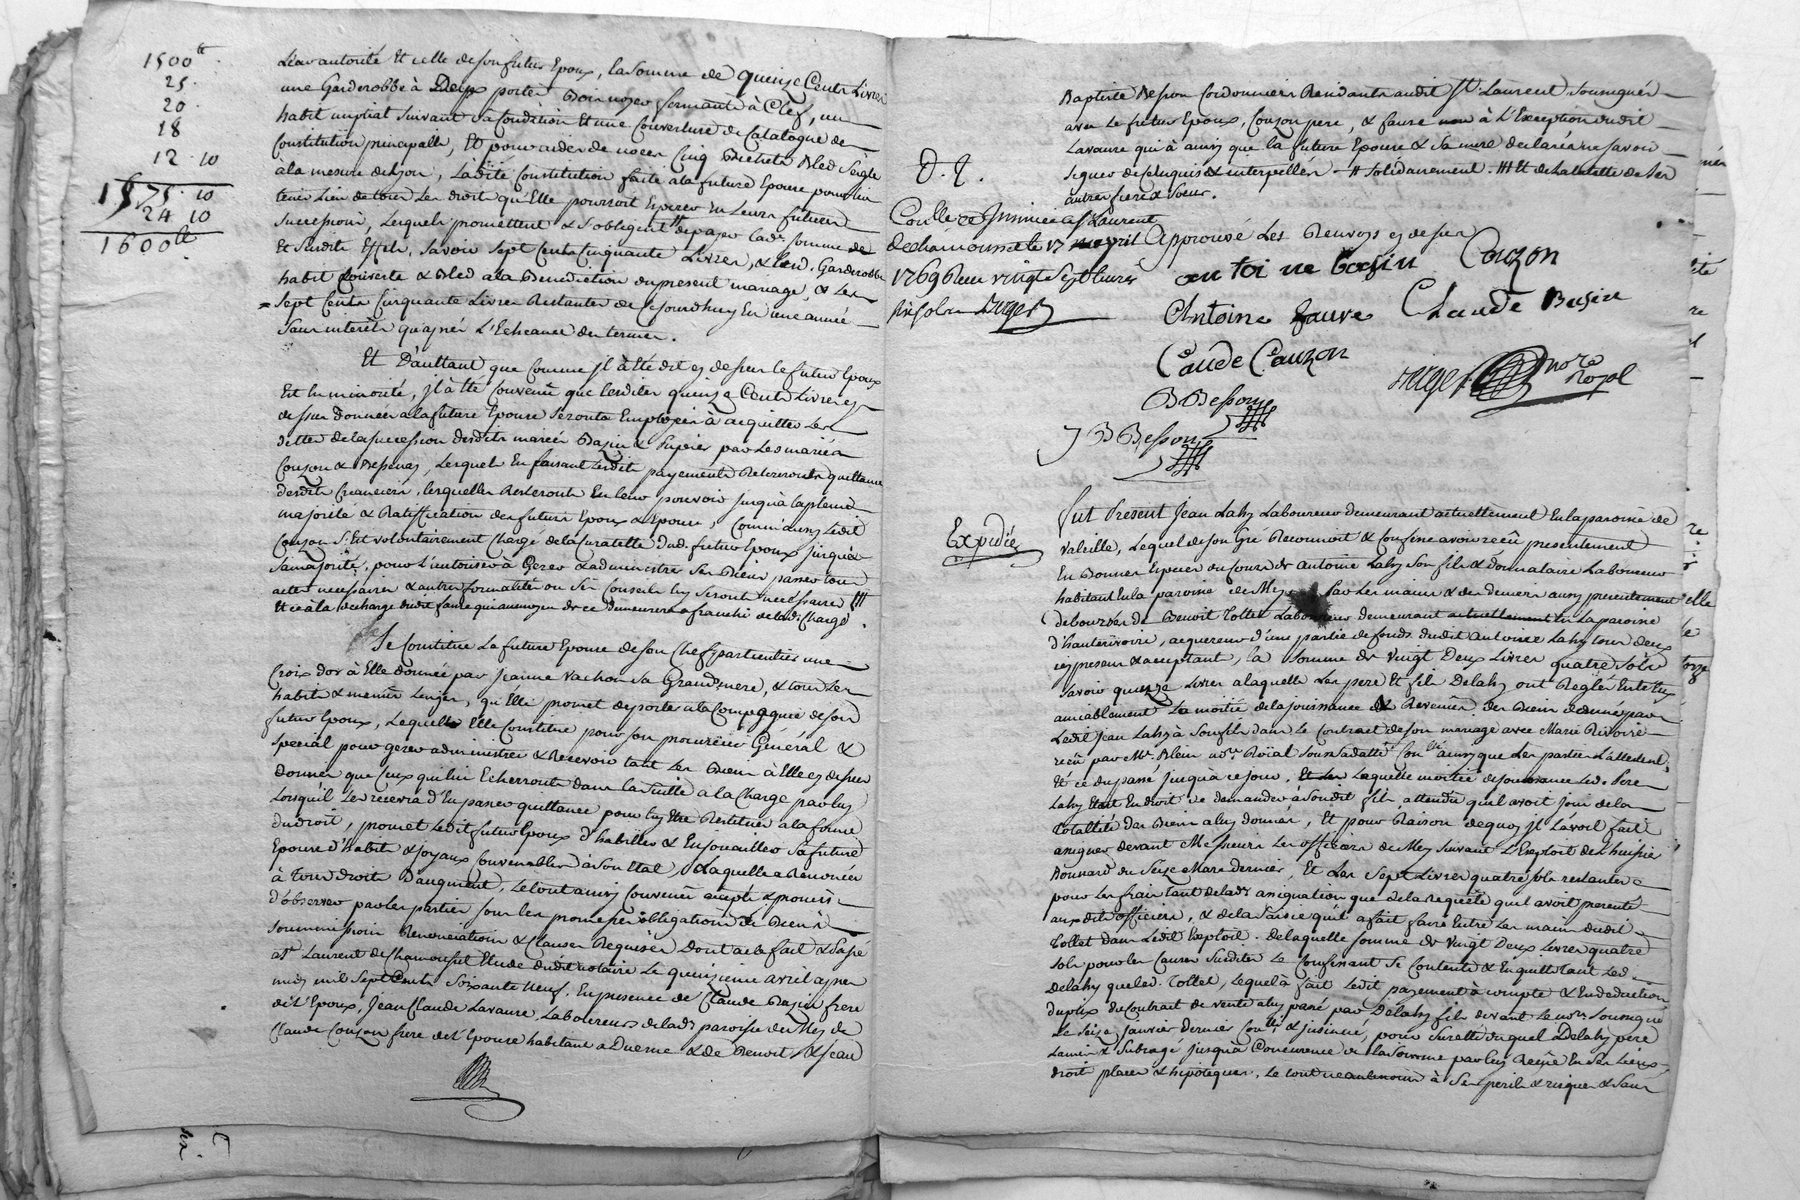 1500 tt
25.
20.
18
12. 10
1575. 10
24 10
1600 tt
autorité Et celle de son futur Epoux, la somme de quinze Cents Livres
une Garderobbe à Deux portes Bois noyer fermante à Clef, un
habit nuptial suivant sa Condition Et une Couverture de Catalogne de
Constitution principalle, Et pour aider de noces Cinq Bichets Bled Seigle
à la mesure de Lyon, Ladite Constitution faite a la future Epouse pour lui
tenir Lieu de tous Les droits qu'Elle pourroit Esperer En Leurs futures
successions, Lesquels promettent & s'obligent de payer lad. somme de
Et susdits Effets, Savoir Sept Cents Cinquante Livres, & lesd. Garderobbe
habit Couverte & Bled a la Benediction du present mariage, & Les
Sept Cents Cinquante Livres Restantes de Cejourdhuy En une année
Sans interêts qu'après L'Echeance du terme.
Et D'auttant que Comme jl à été dit cy dessus le futur Epoux
Est En minorité, jl à été Convenu que lesdites quinze Cents Livres cy
dessus données a la future Epouse Seronts Employées à acquitter Les
dettes de la succession desdits mariés Bazin & Pupier par Les mariés
Couzon & Bessenay, Lesquels En faisant Lesdits payements Retireronts quittance
desdits Creanciers, lesquelles Resteronts En leur pouvoir jusqu'à la pleine
majorité & Ratiffication des futurs Epoux & Epouse, Comm'aussy Ledit
Couzon S'Est volontairement Chargé de la Curatelle dud. futur Epoux jusqu'à
Sa majorité, pour L'autoriser à Gerer & administrer Ses Biens passer tous
actes necessaires & autres formalités ou Ses Conseils luy Seronts necessaires ///
Et ce à la décharge dudit faure qui au moyen de ce demeurera afranchi de lad. Charge.
Se Constitue La future Epouse de son Chef particulier une
Croix d'or à Elle donnée par jeanne Vachon Sa Grand mere, & tous Les
habits & menus Linges, qu'Elle promet de porter a la Compagnie de son
futur Epoux, Lequelle Elle Constitue pour son procureur Général &
Special pour gerer administrer & Recevoir tant Les Biens à Elle cy dessus
donnés que Ceux qui lui Echerronts dans la suitte a la Charge par luy
Lorsqu'il Les recevra d'En passer quittance pour luy Etre Restitués a la forme
du droit, promet Ledit futur Epoux d'habiller & Enjoaïller Sa future
Epouse d'habits & joyaux Convenables à Son Etat, à Laquelle a Renoncée
à tous droits D'augment, Le tout ainsy Convenu accepté & promis
d'observer par les parties sous les promesses obligations de Biens
soumissions Renonciations & Clauses Requises Dont acte fait & Passé
a St Laurent de Chamousset Etude dudit notaire Le quinzieme avril apres
midy mil Sept Cents Soixante neuf. En presence de Claude Bazin frere
de l'Epoux, Jean Claude Lavaure, Laboureurs de lad. paroisse de
Claude Couzon frere de l'Epouse habitant a Duerne & de Benoit & jean
Baptiste Besson Cordonniers Residants audit St Laurent Soussignés
avec Le futur Epoux, Couzon pere, & faure à L'Exception dudit
Lavaure qui à ainsy que la future Epouse & Sa mere declarés ne savoir
signer de ce Enquis & interpellés - # solidairement. /// Et de la tutelle de Ses
autres freres & Soeurs.
Approuvé Les Renvoys cy dessus
D. Q.
Con.lle St Laurent
de chamousset le 17 avril
1769 Receu vingt Sept Livres
six sols Durget
antoi ne basin Couzon
Antoine faure Claude Basin
Caude Cauzon
B Besson
J B Besson
nore Royal
Expédiée
fut Present Jean Lahy Laboureur demeurant actuellement En la paroisse de
Valeille, Lequel de son Gré Reconnoit & Confesse avoir receû presentement
En Bonnes Especes du Cours de Antoine Lahy Son fils & donnataire Laboureur
habitant En la paroisse de Mey Par Les mains & des deniers aussy presentement
deboursés de Benoit Tollet Laboureur demeurant actuellement En La paroisse
d'hauterivoire, acquereur d'une partie de fonds dudit Antoine Lahy tous deux
icy presens & acceptant, la Somme de Vingt Deux Livres quatre Sols
Savoir quinze Livres a laquelle Les pere Et fils Delahy ont Reglés Entr'Eux
amiablement La moitié de la jouissance & Revenûs des Biens donnés par
Ledit Jean Lahy à Son fils dans Le Contract de Son mariage avec Marie Rivoire
reçû par Me Blein nore Roïal Sous Sa datte Con.lé ainsy que Les parties L'attestent,
Et ce du passé jusqu'a ce jour, Et Les Laquelle moitié de jouissance Led. Pere
Lahy Etait En droit de demander à Sondit fils, attendu qu'il avoit joui de la
totallité des Biens a luy donnés, Et pour Raison de quoy jl L'avoit fait
assigner devant Messieurs Les officiers de Mey Suivant L'Exploit de L'huissier
Bonnard du Seize Mars dernier, Et Les Sept Livres quatre sols restantes
pour Les frais tant de lad. assignation que de la requête qu'il avoit presenté
auxdits officiers, & de la Saisie qu'il a fait faire Entre Les mains dudit
Tollet dans Ledit Exploit. de laquelle somme de Vingt Deux Livres quatre
Sols pour les Causes Susdites Le Confessant Se Contente & En quitte tant Led.
Delahy que led. Tollet, Lequel à fait Ledit payement à compte & En deduction
du prix du Contrat de vente a luy passé par Delahy fils devant Le nore Soussigné
Le Seize janvier dernier Con.llé & jnsinué, pour Suretté duquel Delahy pere
La mis & Subrogé jusqu'à Concurrence de la Somme par luy Reçûe En Ses Lieux
droits places & hipoteques, Le tout neantmoins à Ses perils & risques & Sans